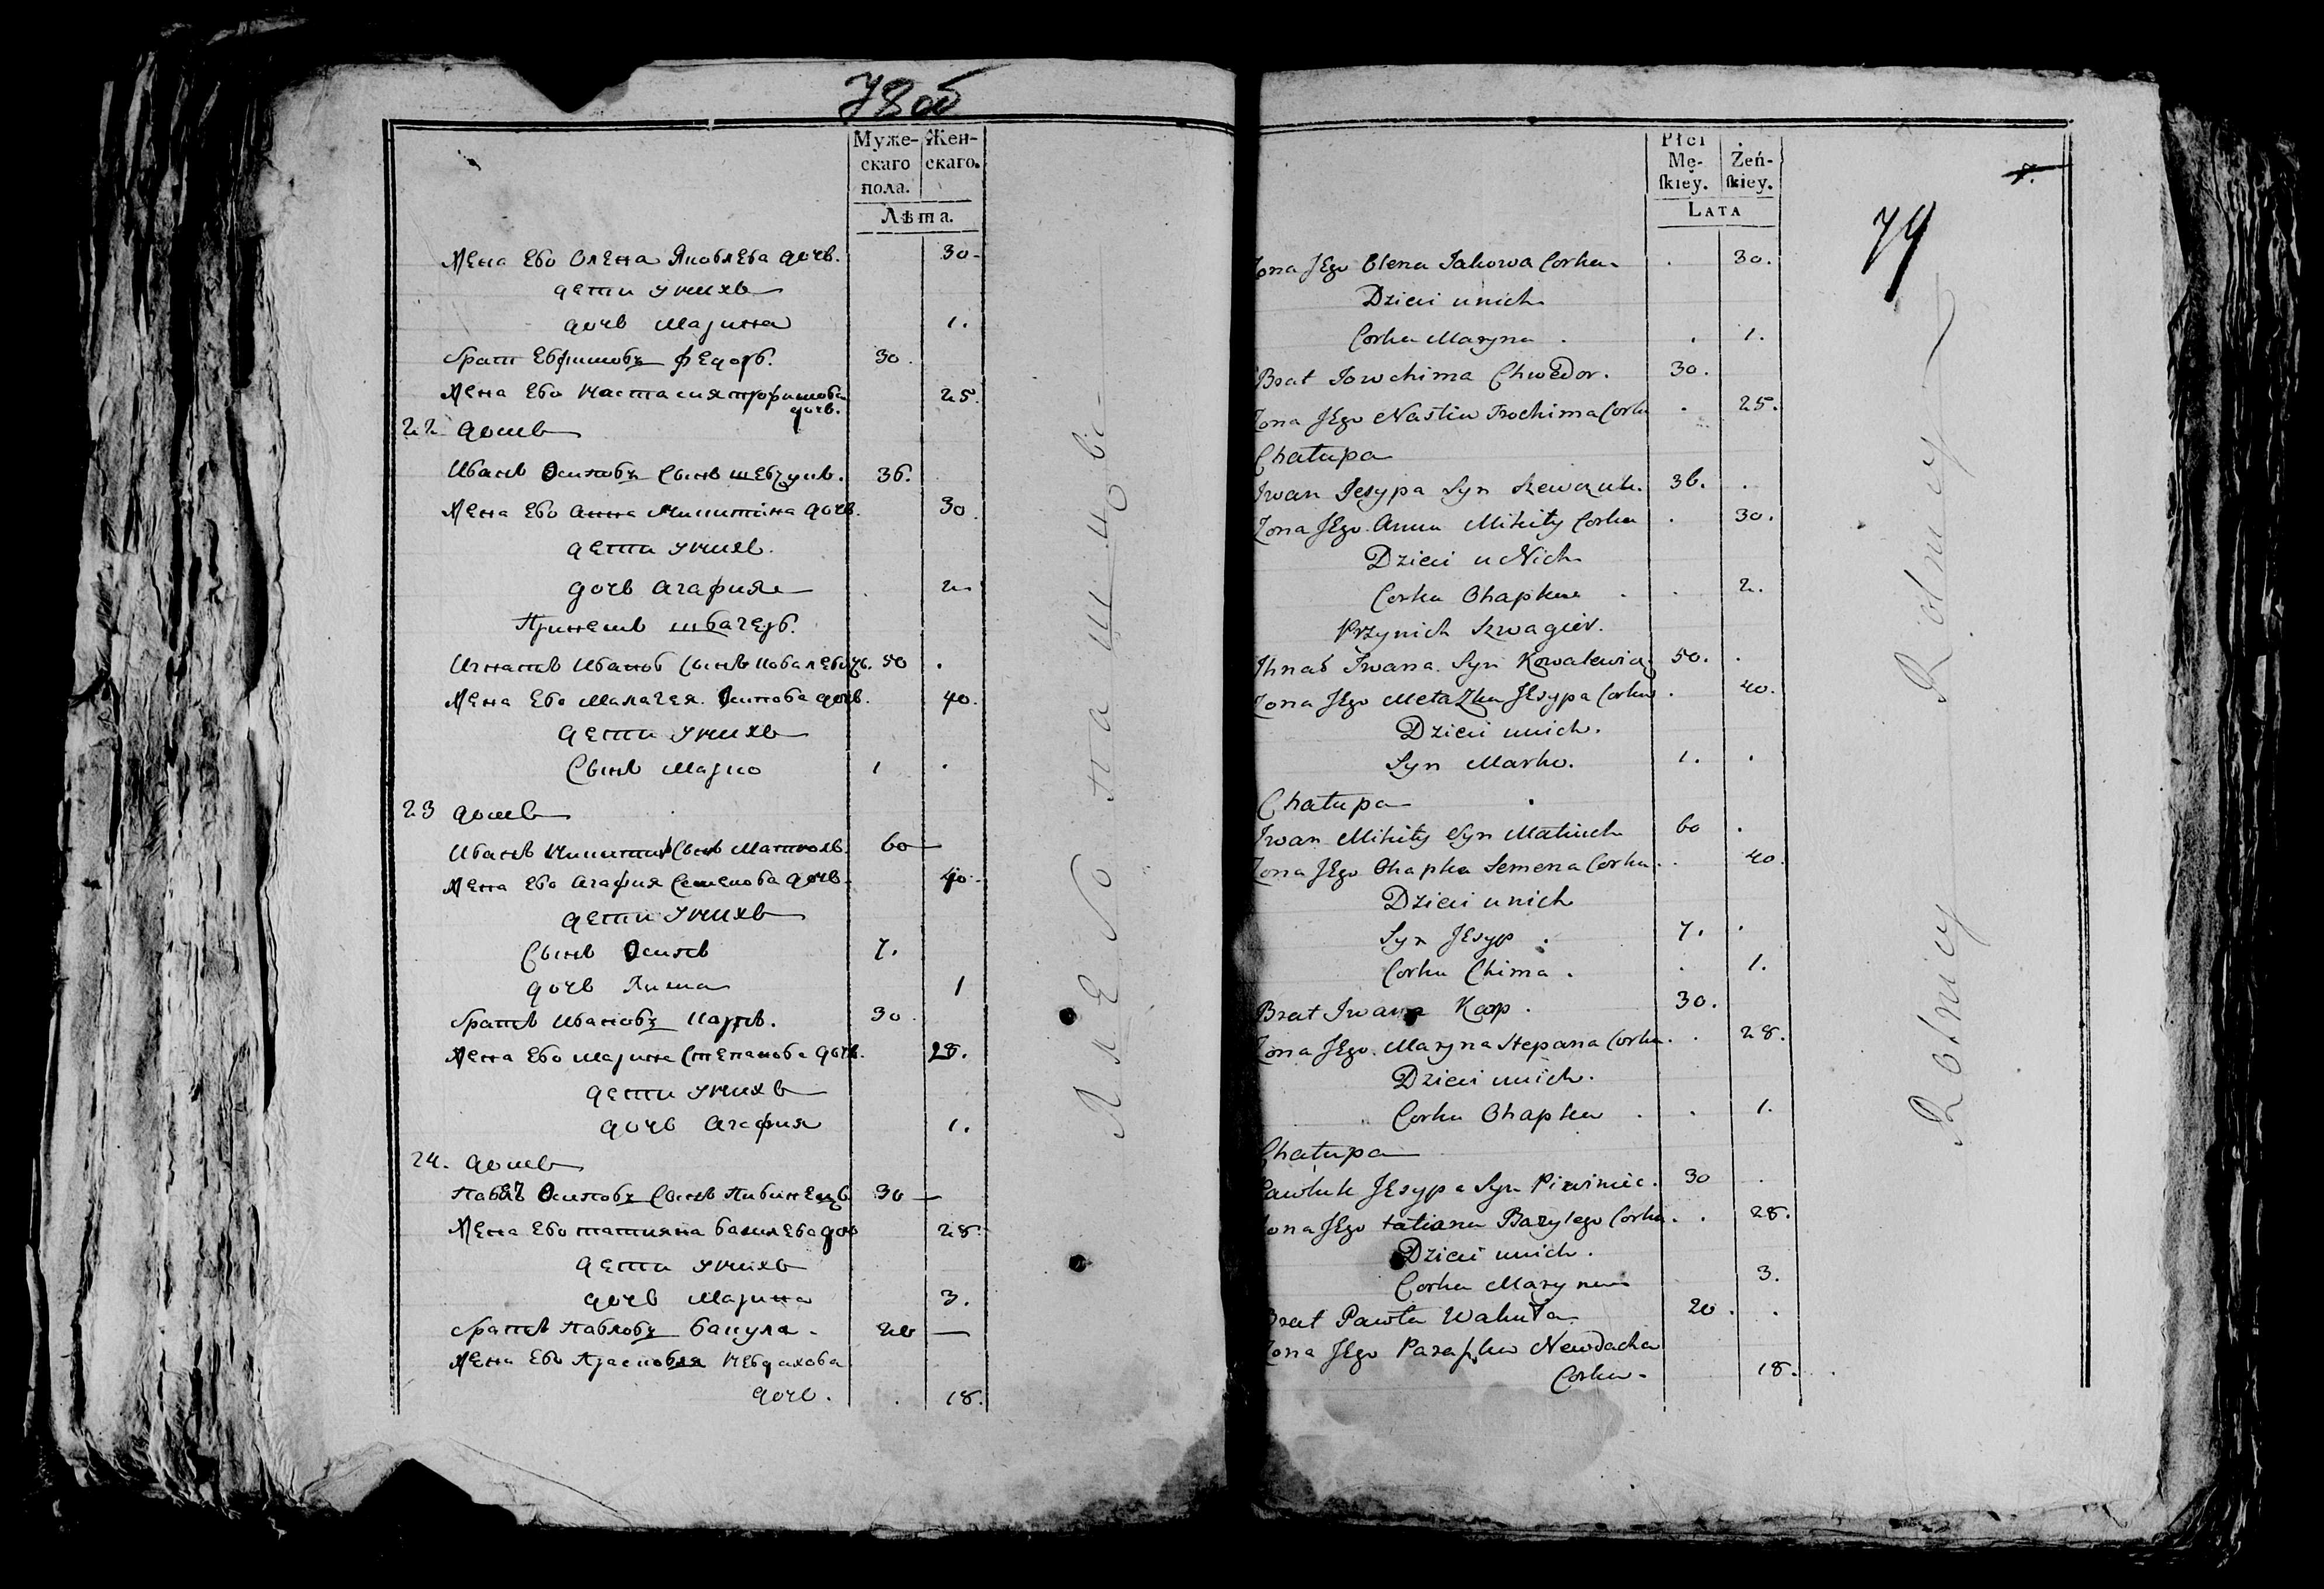 78 об
Муже-
скаго
пола.
Жен-
скаго.
Лѣта.
Жена Ево Олена Яковлева дочь. 30.
дети у нихъ
дочь Марина 1.
брат Евфимовъ Федоръ. 30.
Жена Ево Настасия трофимова 25.
дочь.
22 домъ
Иванъ Осиповъ Сынъ шевчукъ. 36.
Жена Ево Анна Микитина дочь. 30.
дети у нихъ.
дочь Агафия 2
При немъ швагеръ.
Игнатъ Иванов Сынъ ковалевичъ. 50
Жена Ево Малагея Осипова дочь. 40.
дети у нихъ
Сынъ Марко 1
23 домъ
Иванъ Микитин Сынъ 60
Жена Ево Агафия Семенова дочь. 40.
дети у нихъ
Сынъ Осипъ 7.
дочь Хима 1
братъ Ивановъ Карпъ. 30
Жена Ево Марина Степанова дочь. 28.
дети у нихъ
дочь Агафия 1.
24. домъ
Осиповъ Сынъ 30
Жена Ево татияна василева доч 28.
дети у нихъ
дочь Марина 3.
братъ Павловъ вакула. 20
Жена Ево Прасковея Невдахова
дочь. 18.
Płci
Mę-
skiey.
Żeń-
skiey.
LATA
79
Zona Jego Elena Jakowa Corka. 30.
Dzieci u nich
Corka Maryna 1.
Brat Jowchima Chwedor. 30.
Zona Jego Nastia Trochima Corka 25.
Chałupa
Iwan Jesypa Syn Szewczuk. 36.
Zona Jego Anna Mikity Corka 30.
Dzieci u Nich
Corka Ohapka 2.
Przy nich Szwagier.
Ihnat Iwana Syn Kowalewicz 50.
Zona Jego Jesypa Corka 40.
Dzieci u nich.
Syn Marko. 1.
Chałupa
Iwan Mikity Syn 60
Zona Jego Ohapka Semena Corka. 40.
Dzieci u nich
Syn Jesyp 7.
Corka Chima. 1.
Brat Iwana Karp. 30.
Zona Jego Maryna Stepana Corka. 28.
Dzieci u nich.
Corka Ohapka 1.
Chałupa
Pawluk Jesypa Syn 30
Zona Jego tatiana Bazylego Corka. 28.
Dzieci u nich.
Corka Maryna 3.
Brat Pawła Wakuła 20.
Zona Jego Paraska Newdacha
Corka. 18.